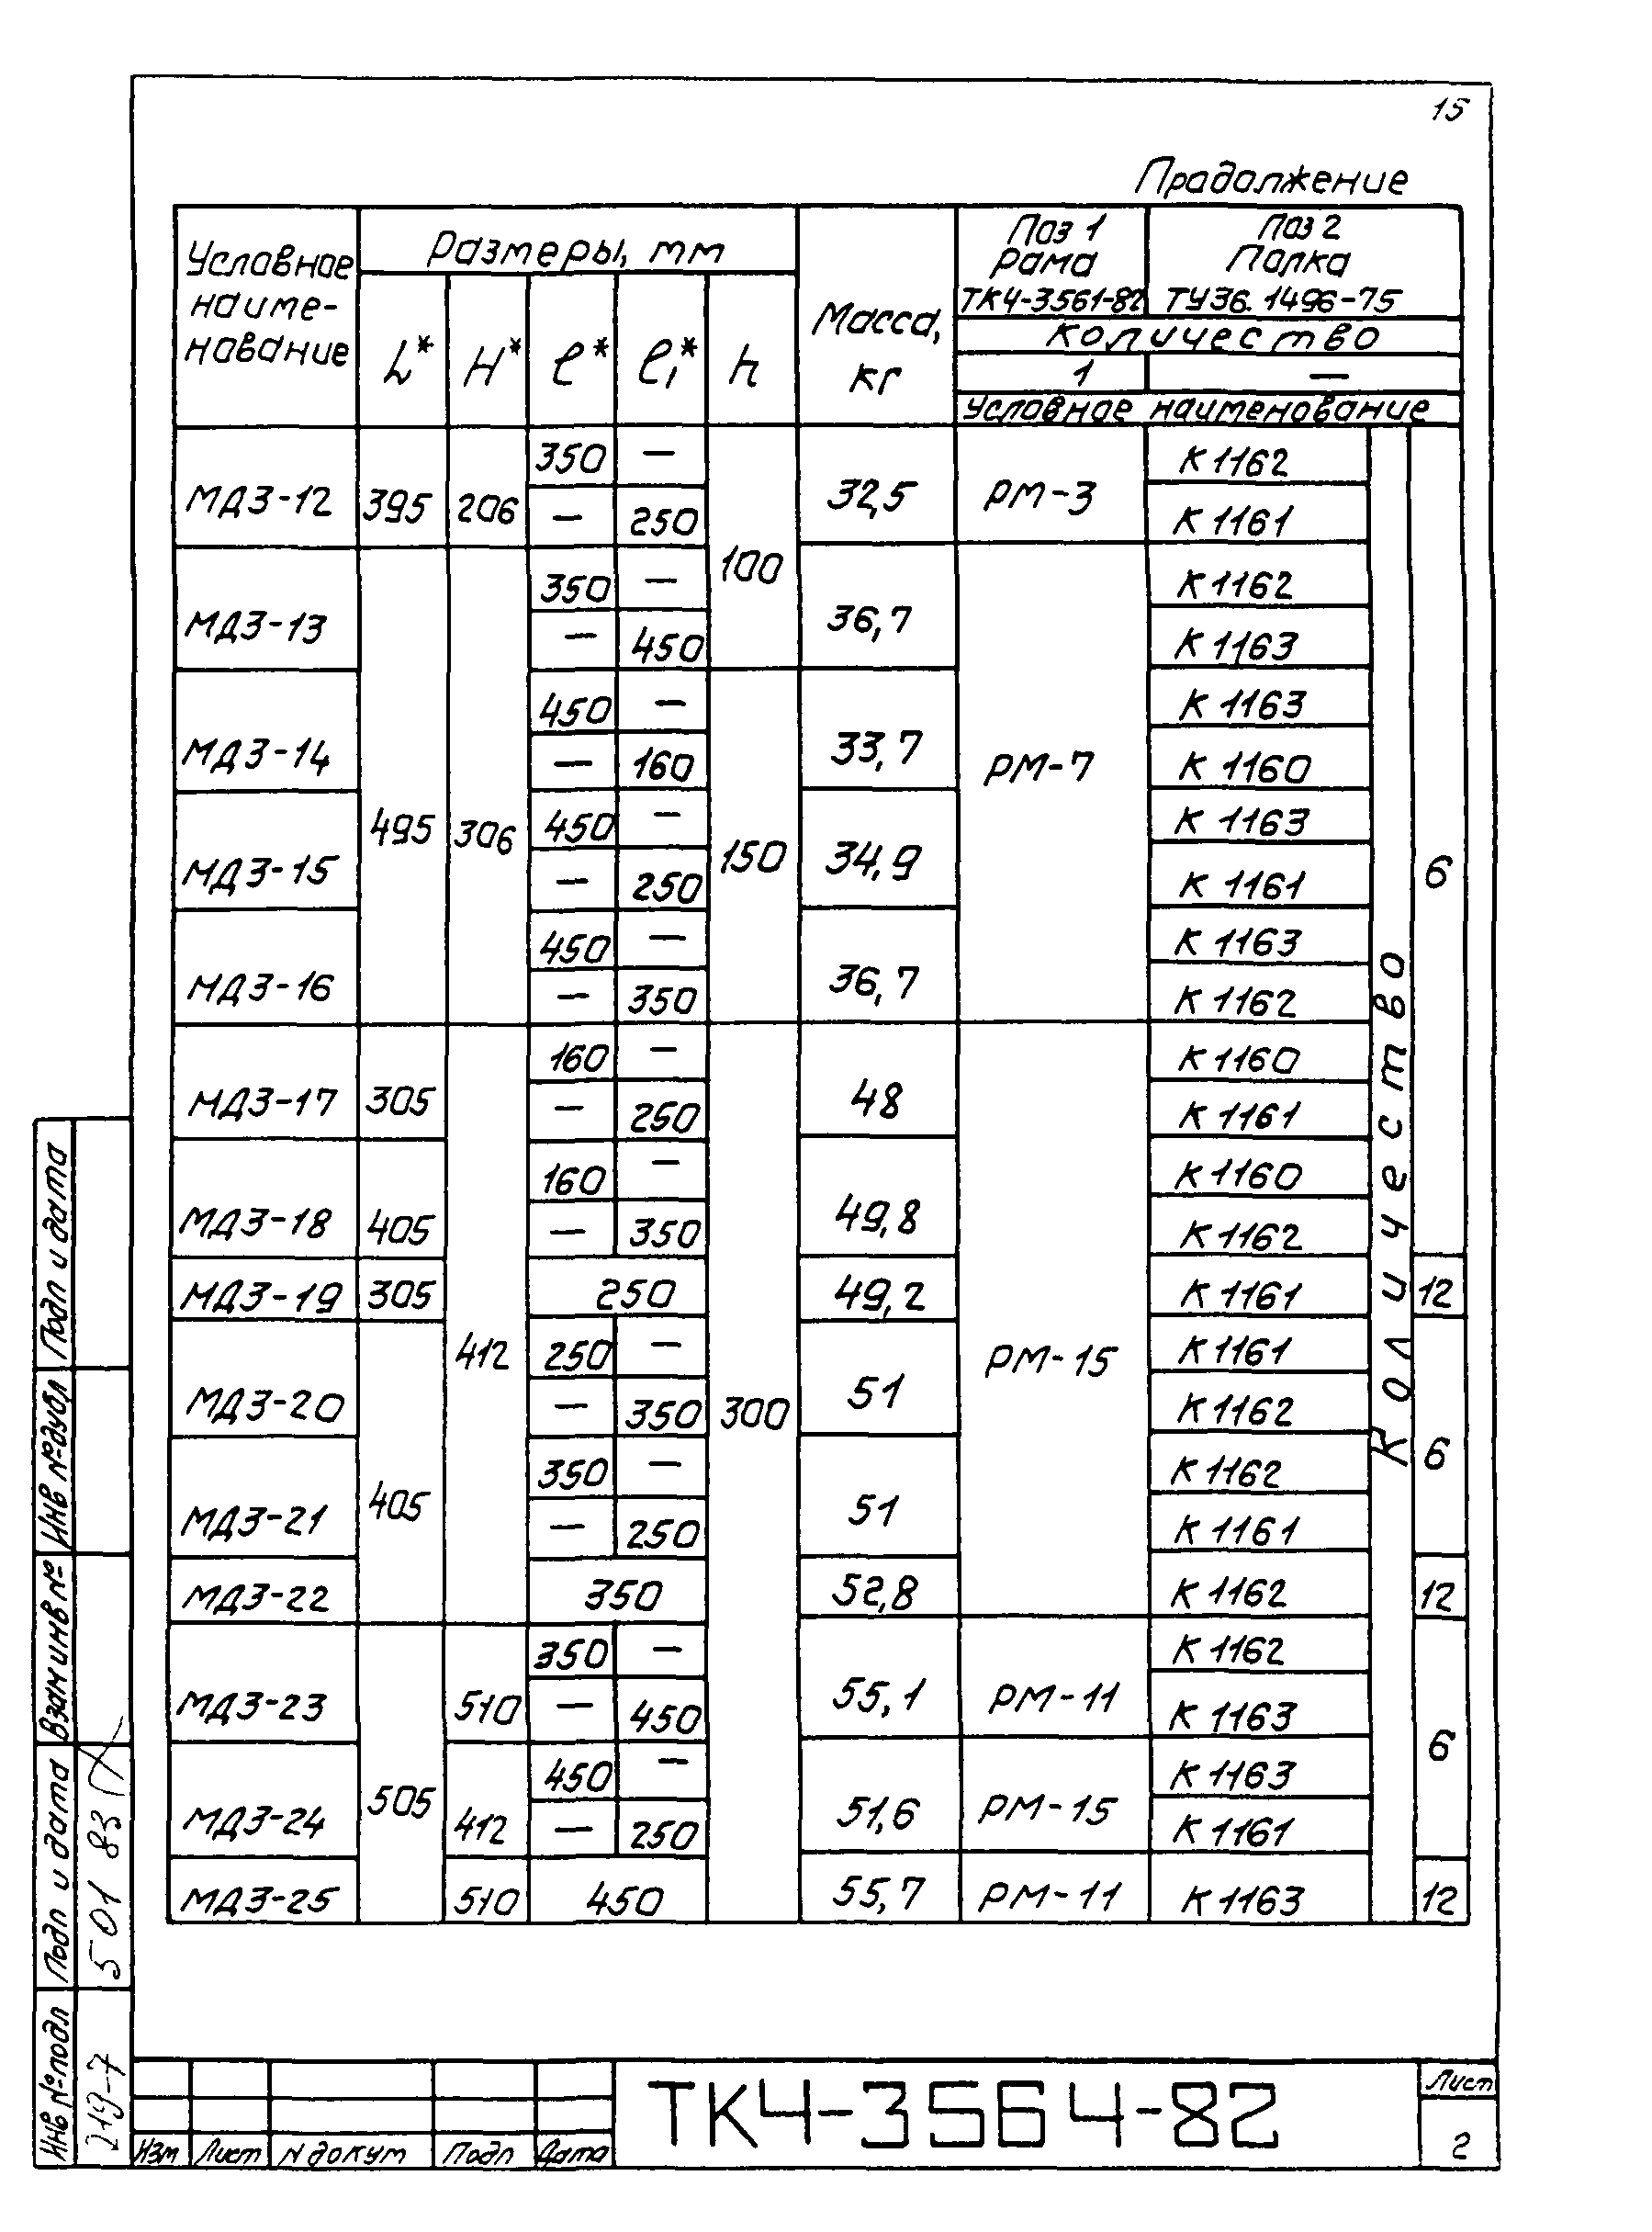 15
Продолжение
Условное наиме-нование
Размеры, мм
L* H* ℓ* ℓ₁* h
Масса, кг
Поз 1 Рама ТК4-3561-82
Поз 2 Полка ТУ36.1496-75
Количество
1 —
Условное наименование
МДЗ-12 395 206 350 — 100 32,5 РМ-3 К1162 6
— 250 К1161
МДЗ-13 495 306 350 — 36,7 РМ-7 К1162
— 450 К1163
МДЗ-14 450 — 150 33,7 К1163
— 160 К1160
МДЗ-15 450 — 34,9 К1163
— 250 К1161
МДЗ-16 450 — 36,7 К1163
— 350 К1162
МДЗ-17 305 412 160 — 300 48 РМ-15 К1160
— 250 К1161
МДЗ-18 405 160 — 49,8 К1160
— 350 К1162
МДЗ-19 305 250 49,2 К1161 12
МДЗ-20 405 250 — 51 К1161 6
— 350 К1162
МДЗ-21 350 — 51 К1162
— 250 К1161
МДЗ-22 350 52,8 К1162 12
МДЗ-23 505 510 350 — 55,1 РМ-11 К1162 6
— 450 К1163
МДЗ-24 412 450 — 51,6 РМ-15 К1163
— 250 К1161
МДЗ-25 510 450 55,7 РМ-11 К1163 12
Количество
Подп и дата
Инв №дубл
Взам инв №
Подп и дата
501 83
Инв №подл
219-7
Изм Лист N докум Подп Дата
ТК4-3564-82
Лист
2